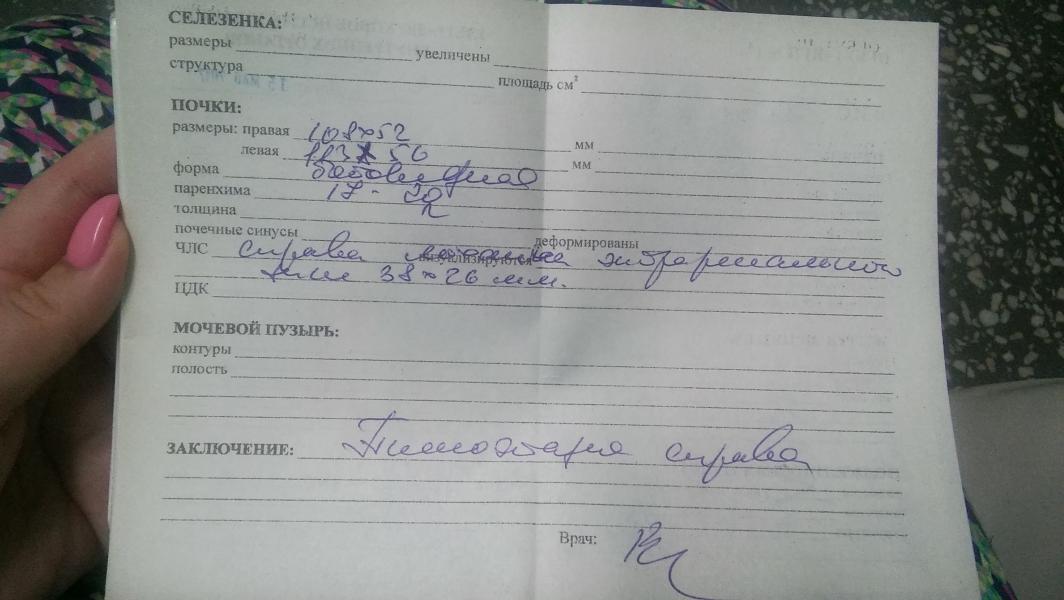 СЕЛЕЗЕНКА:
размеры увеличены
структура площадь см²
ПОЧКИ:
размеры: правая 108×52 мм
левая 113×56 мм
форма бобовидная
паренхима 17-20
толщина
почечные синусы деформированы
визуализируются
ЧЛС справа лоханка экстраренального
типа 38×26 мм.
ЦДК
МОЧЕВОЙ ПУЗЫРЬ:
контуры
полость
ЗАКЛЮЧЕНИЕ: Пиелоэктазия справа
Врач: